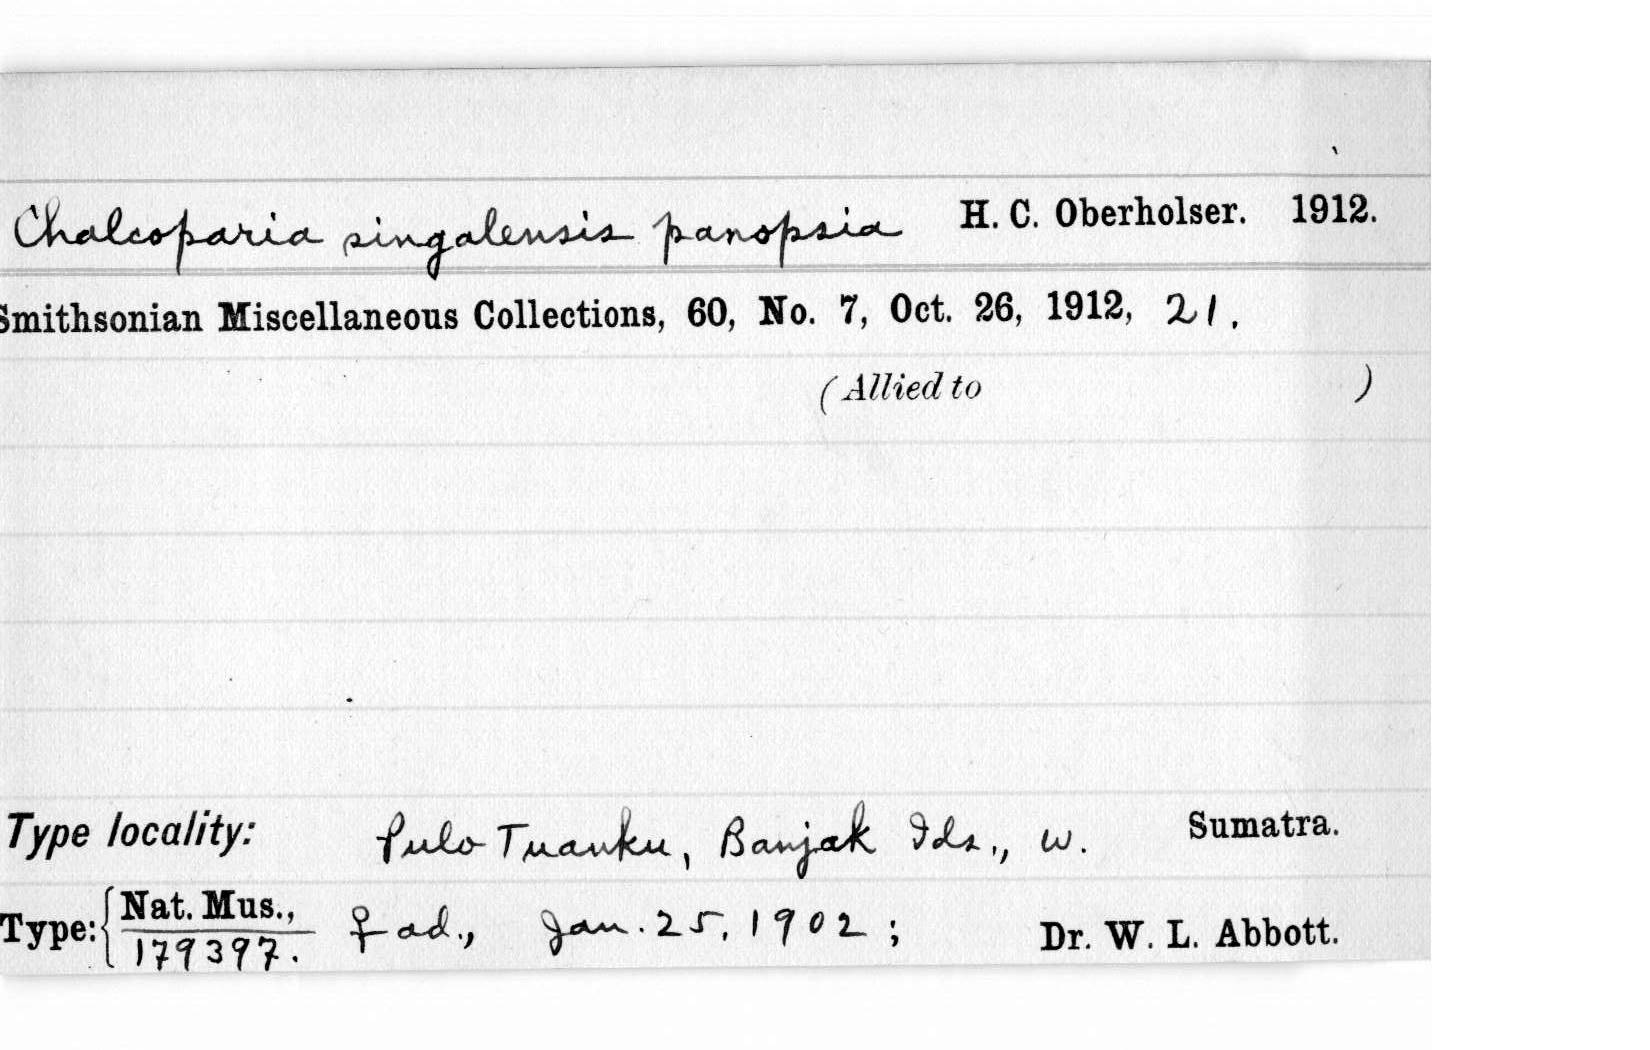 Chalcoparia singalensis panopsia H. C. Oberholser. 1912.
Smithsonian Miscellaneous Collections, 60, No. 7, Oct. 26, 1912, 21.
(Allied to )
Type locality: Pulo Tuanku, Banjak Ids., w. Sumatra.
Type: { Nat. Mus., ♀ ad., Jan. 25, 1902 ; Dr. W. L. Abbott.
179397.